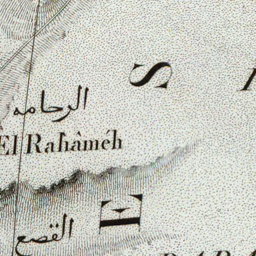 S
الرحامه
El Rahâméh
القصع
E